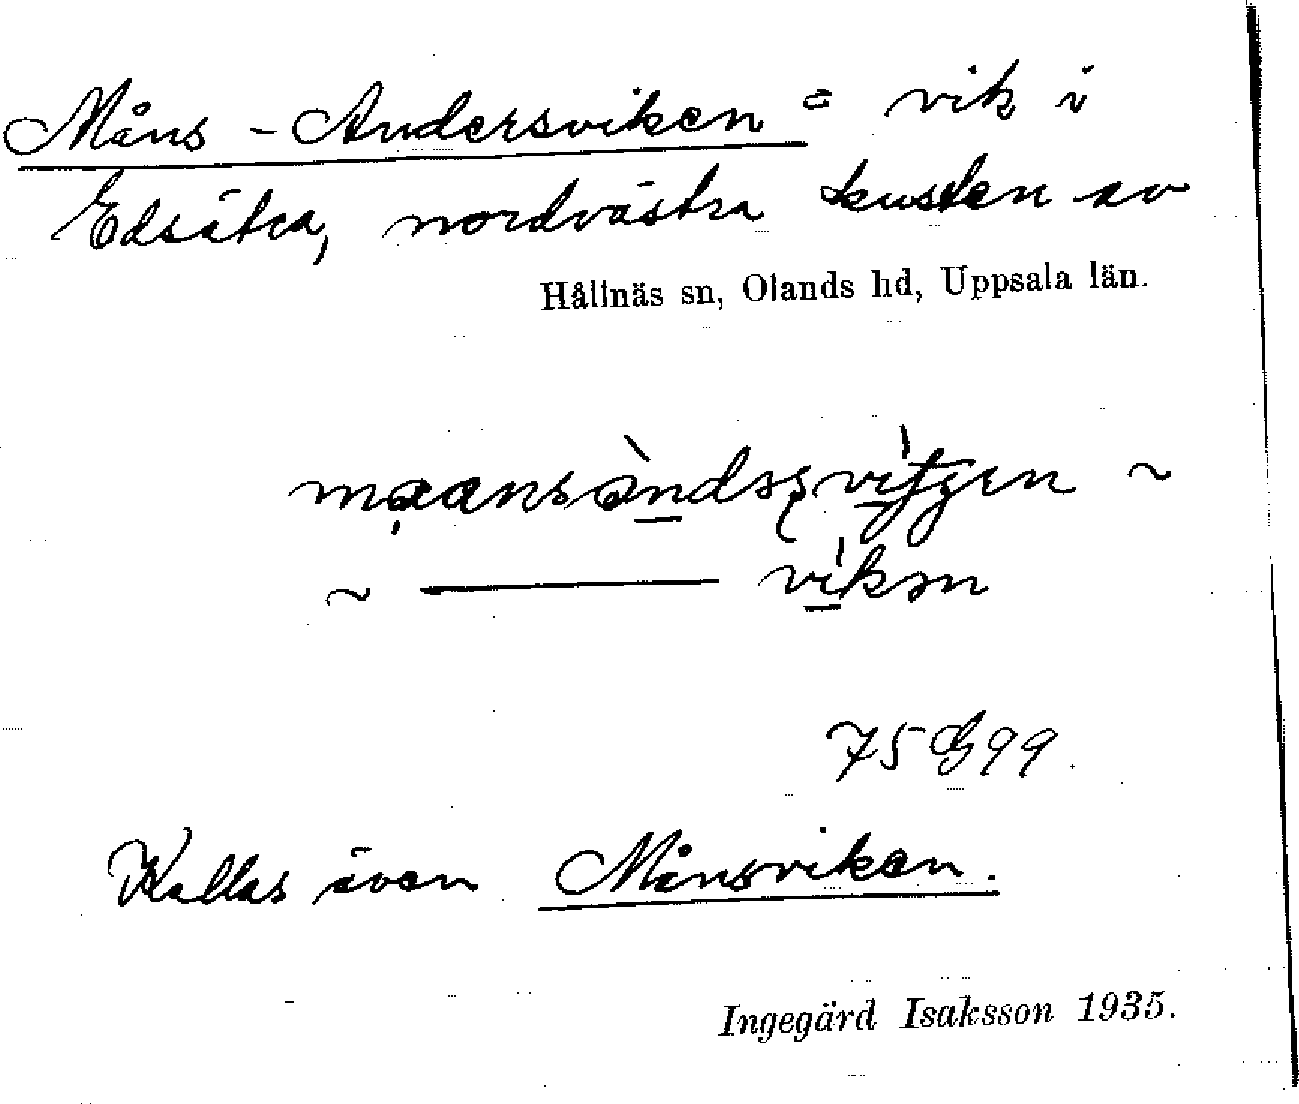 Måns-Andersviken = vik i
Edsätra, nordvästra kusten av
Hållnäs sn, Olands hd, Uppsala län.
~ ——— vikən
75 G 99.
Kallas även Månsviken.
Ingegärd Isaksson 1935.